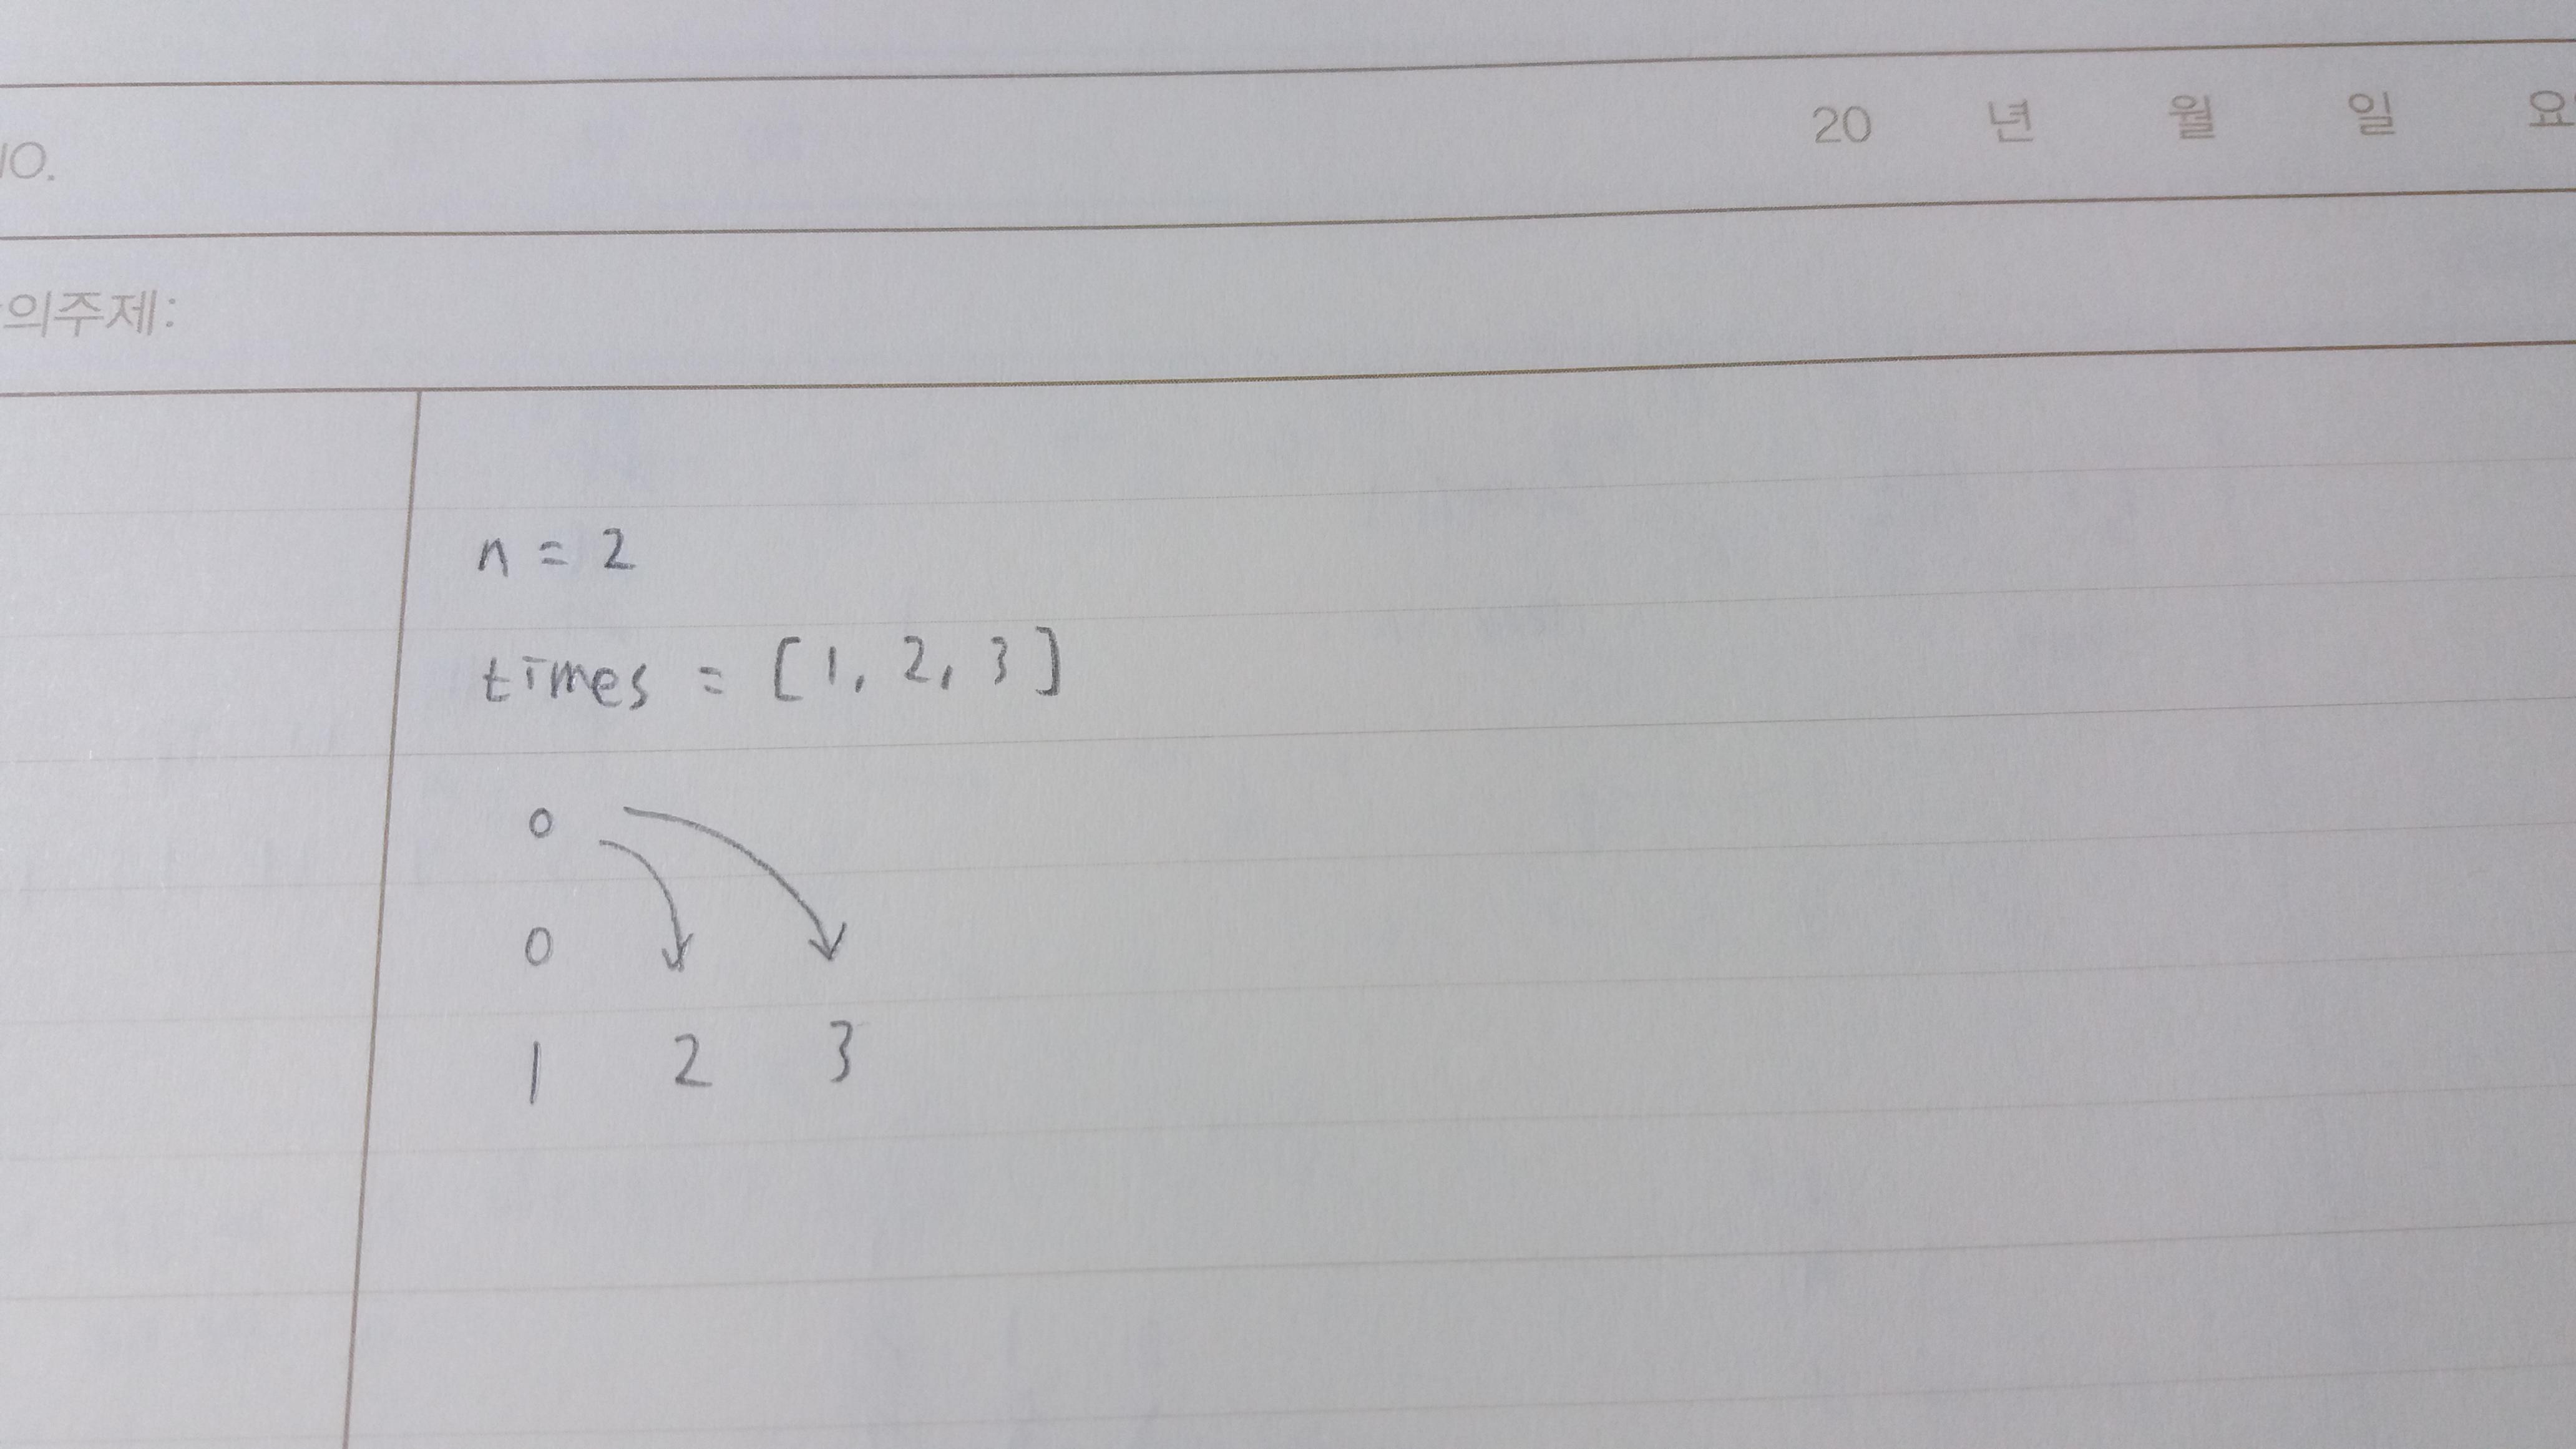 NO.
20 년 월 일 요
의주제:
n = 2
times = [1, 2, 3]
o
o
1 2 3